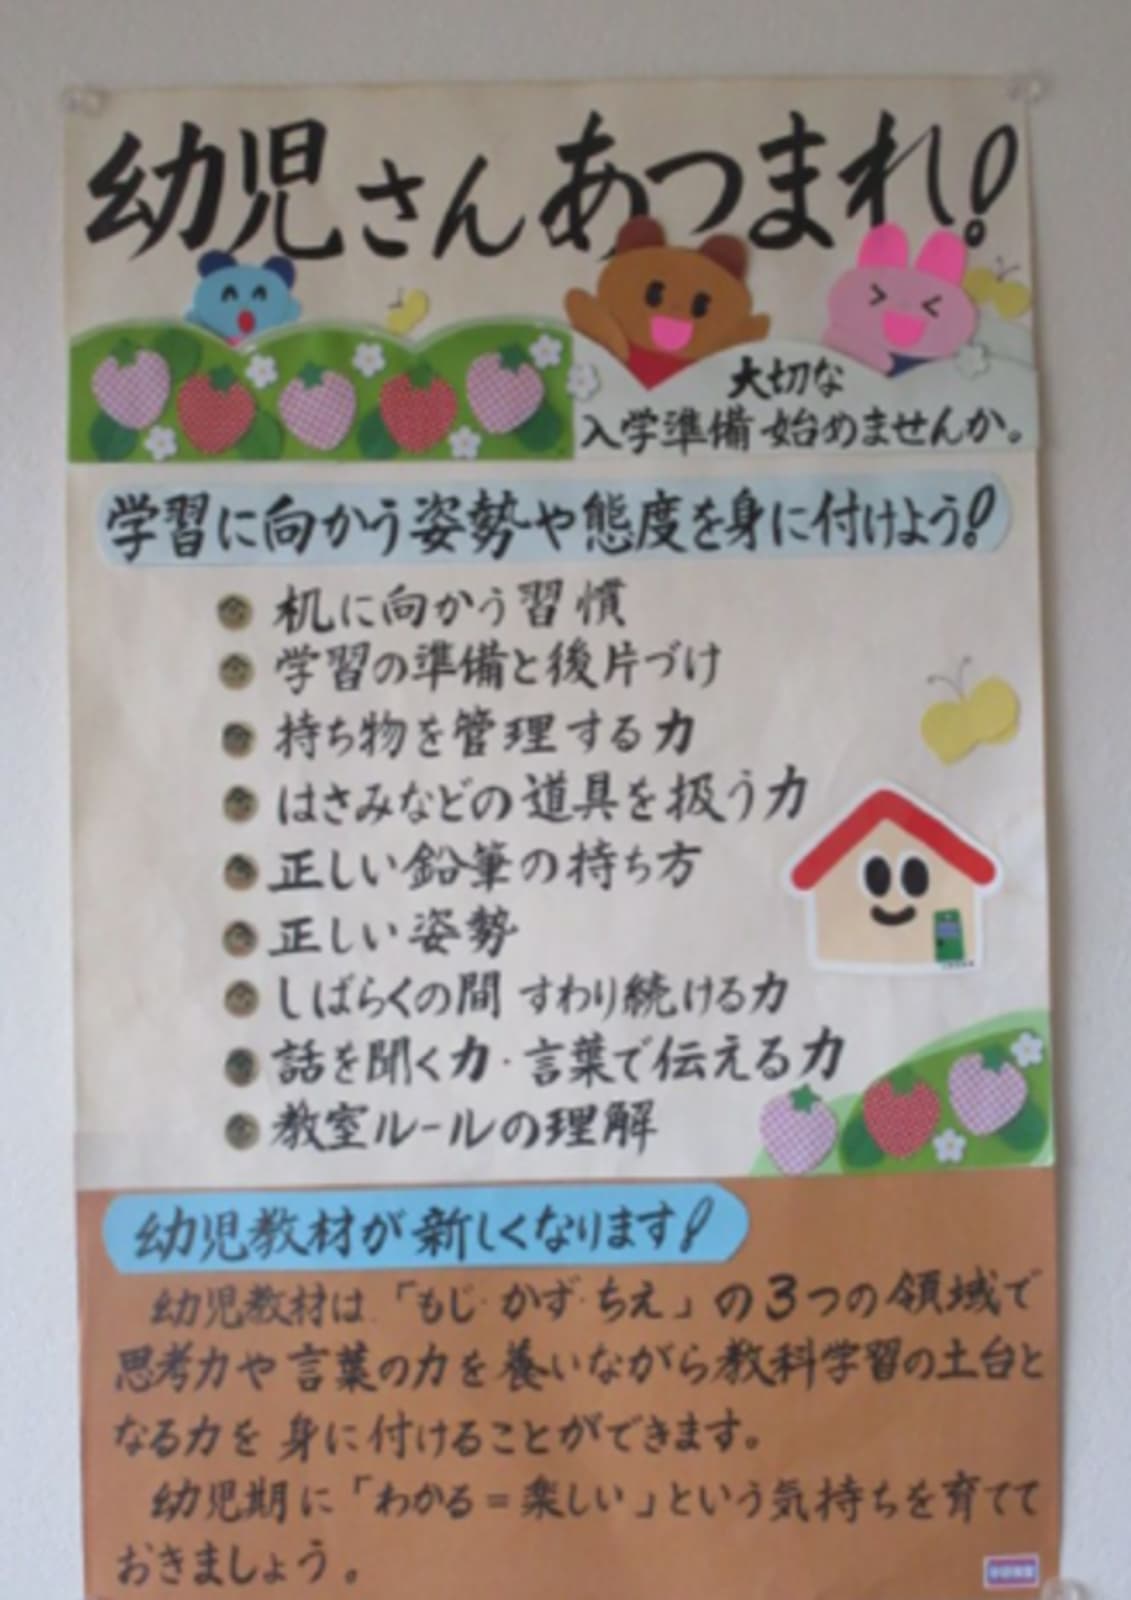 幼児さんあつまれ!
大切な
入学準備始めませんか。
学習に向かう姿勢や態度を身に付けよう!
机に向かう習慣
学習の準備と後片づけ
持ち物を管理する力
はさみなどの道具を扱う力
正しい鉛筆の持ち方
正しい姿勢
しばらくの間 すわり続ける力
話を聞く力・言葉で伝える力
教室ルールの理解
幼児教材が新しくなります!
幼児教材は「もじ・かず・ちえ」の3つの領域で
思考力や言葉の力を養いながら教科学習の土台と
なる力を身に付けることができます。
幼児期に「わかる=楽しい」という気持ちを育てて
おきましょう。